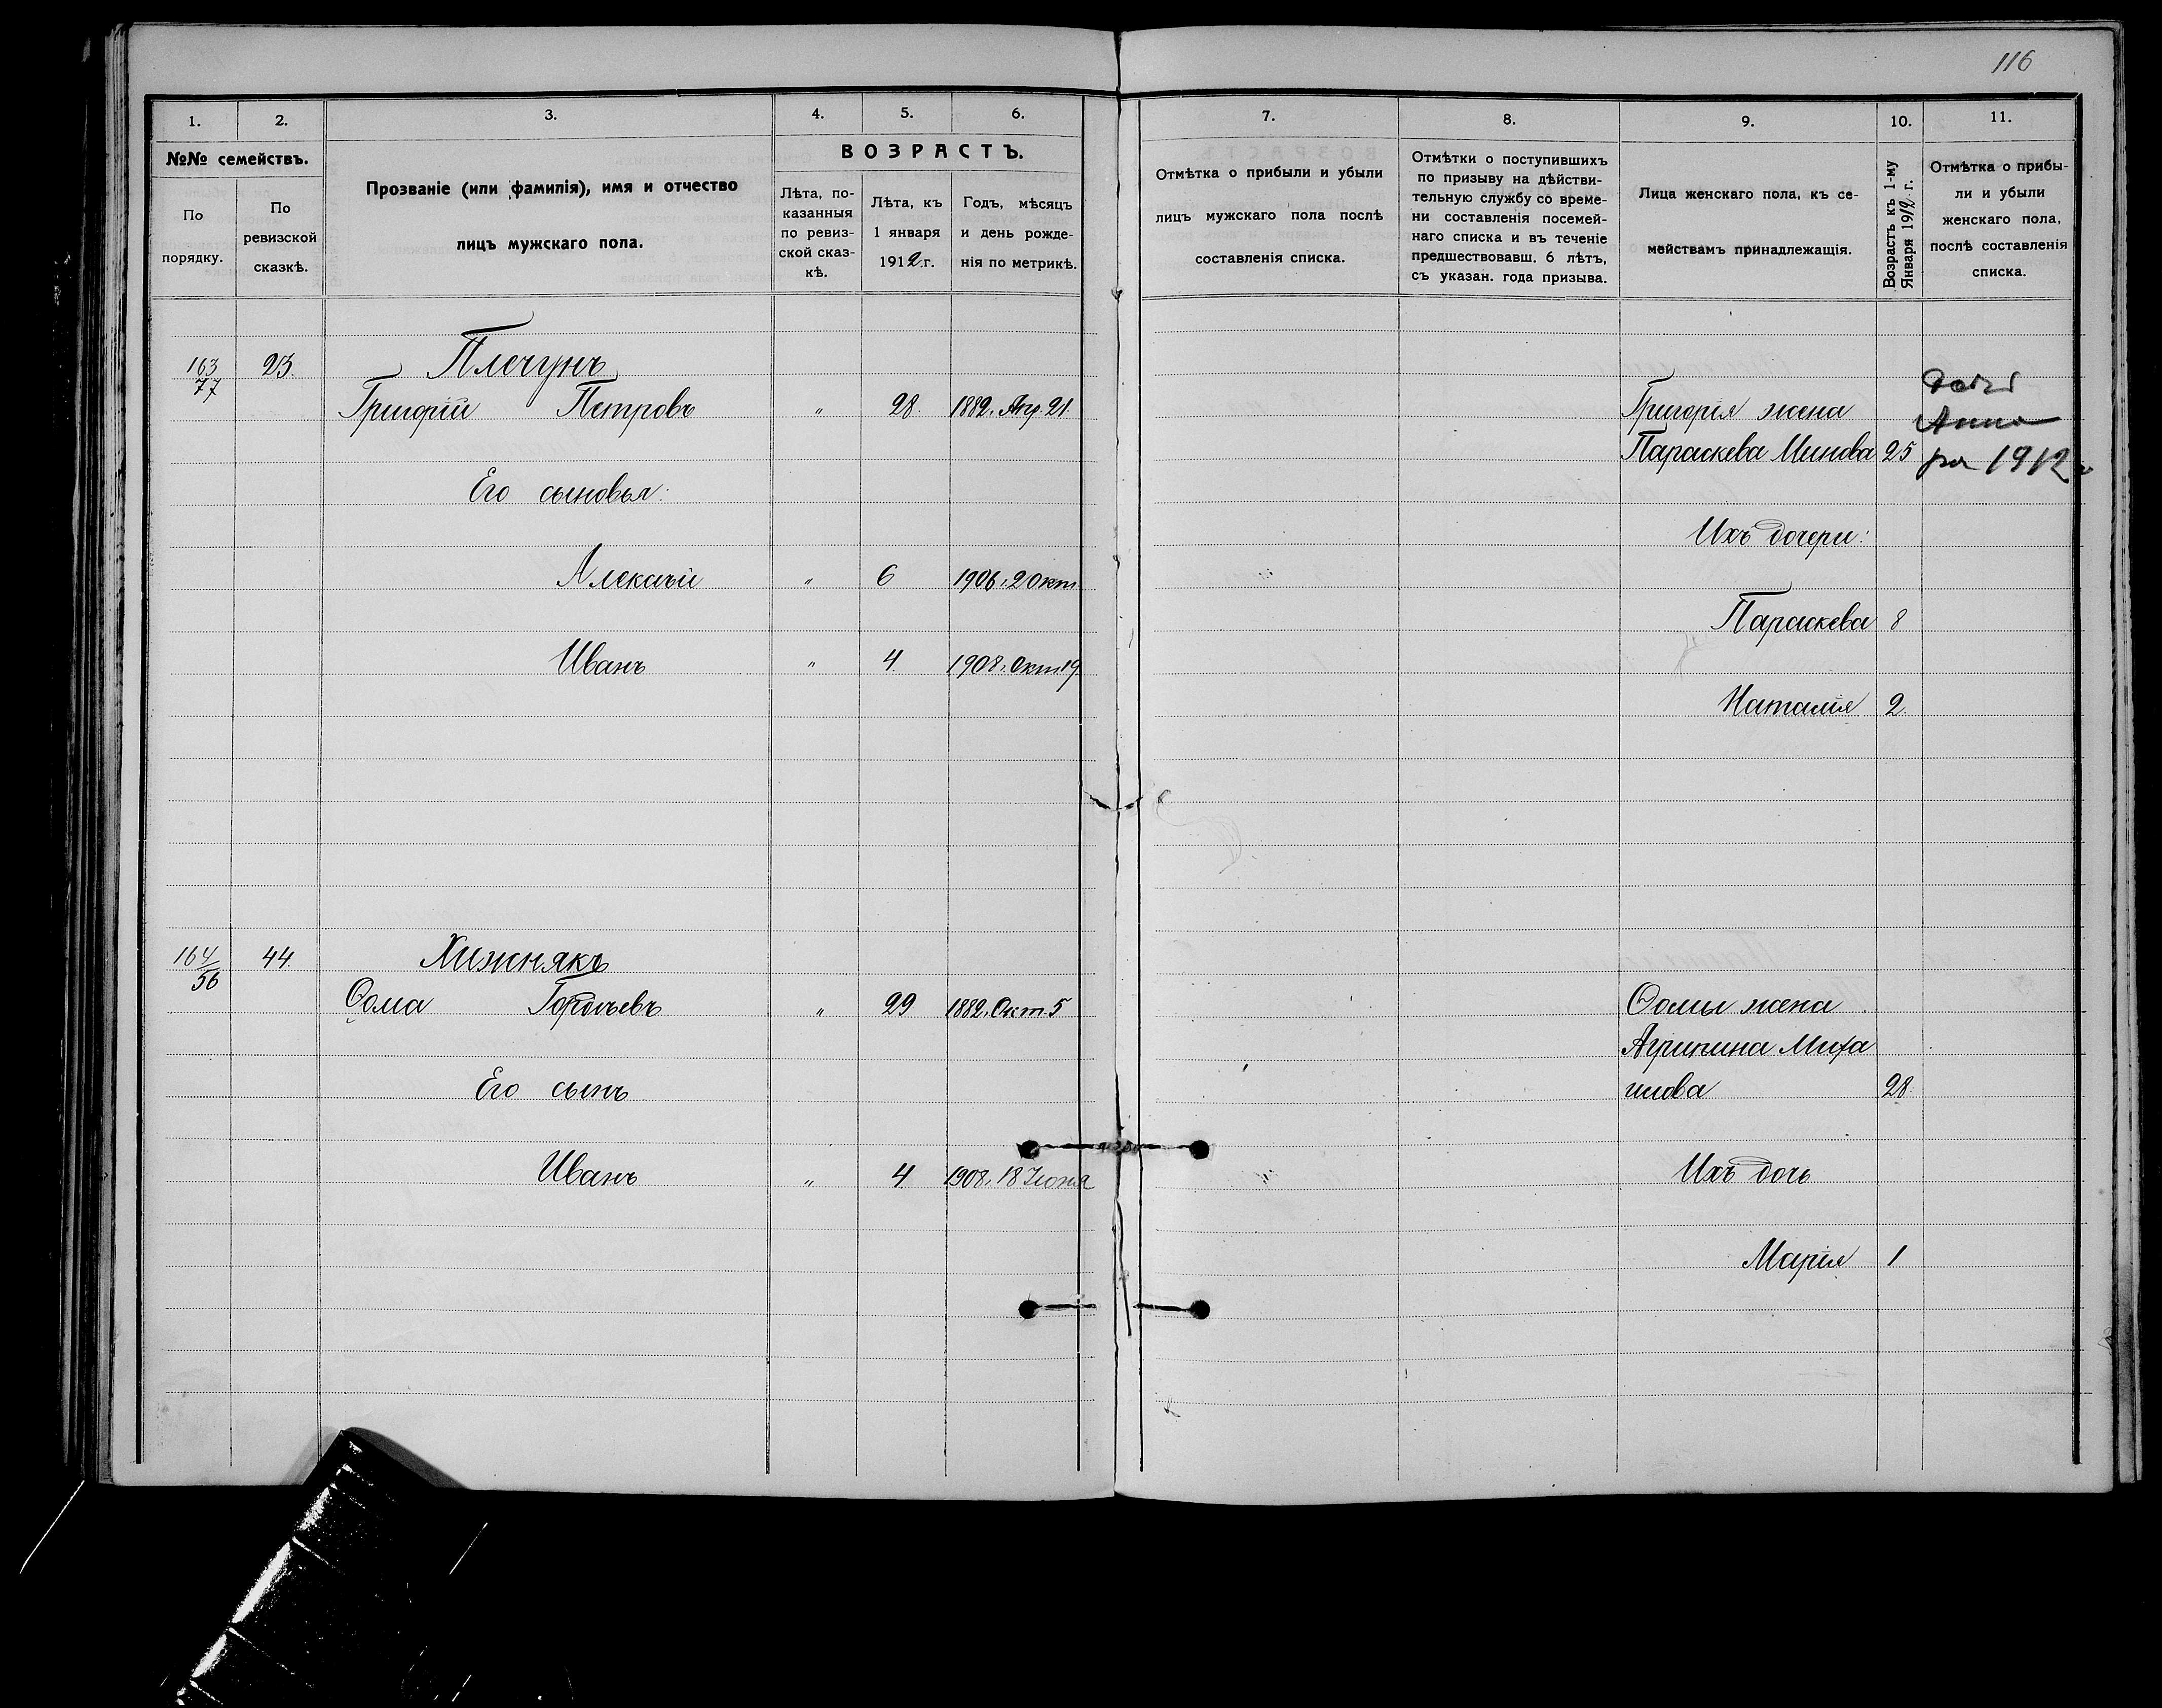 116
1. 2. 3. 4. 5. 6.
№№ семействъ.
По порядку.
По ревизской сказкѣ.
Прозваніе (или фамилія), имя и отчество
лицъ мужскаго пола.
ВОЗРАСТЪ.
Лѣта, по-
казанныя
по ревиз-
ской сказ-
кѣ.
Лѣта, къ
1 января
1912 г.
Годъ, мѣсяцъ
и день рожде-
нія по метрикѣ.
163/77 23. Плечунъ
Григорій Петровъ " 28. 1882. Авг. 21.
Его сыновья:
Алексѣй " 6 1906. 2 окт.
Иванъ " 4. 1908. Окт 19
164/56 44. Хижнякъ
Ѳома " 29 1882. Окт. 5
Его сынъ
Иванъ " 4. 1908. 18 Іюня
7. 8. 9. 10. 11.
Отмѣтка о прибыли и убыли
лицъ мужскаго пола послѣ
составленія списка.
Отмѣтки о поступившихъ
по призыву на дѣйстви-
тельную службу со време-
ни составленія посемей-
наго списка и въ теченіе
предшествовавш. 6 лѣтъ,
съ указан. года призыва.
Лица женскаго пола, къ се-
мействамъ принадлежащія.
Возрастъ къ 1-му
Января 1912 г.
Отмѣтка о прибы-
ли и убыли
женскаго пола,
послѣ составленія
списка.
Григорія жена
Параскева Минова 25
Анна
1912
Ихъ дочери:
Параскева 8
Наталія 2.
Ѳомы жена
Агрипина Миха
илова 28.
Ихъ дочь
Марія 1